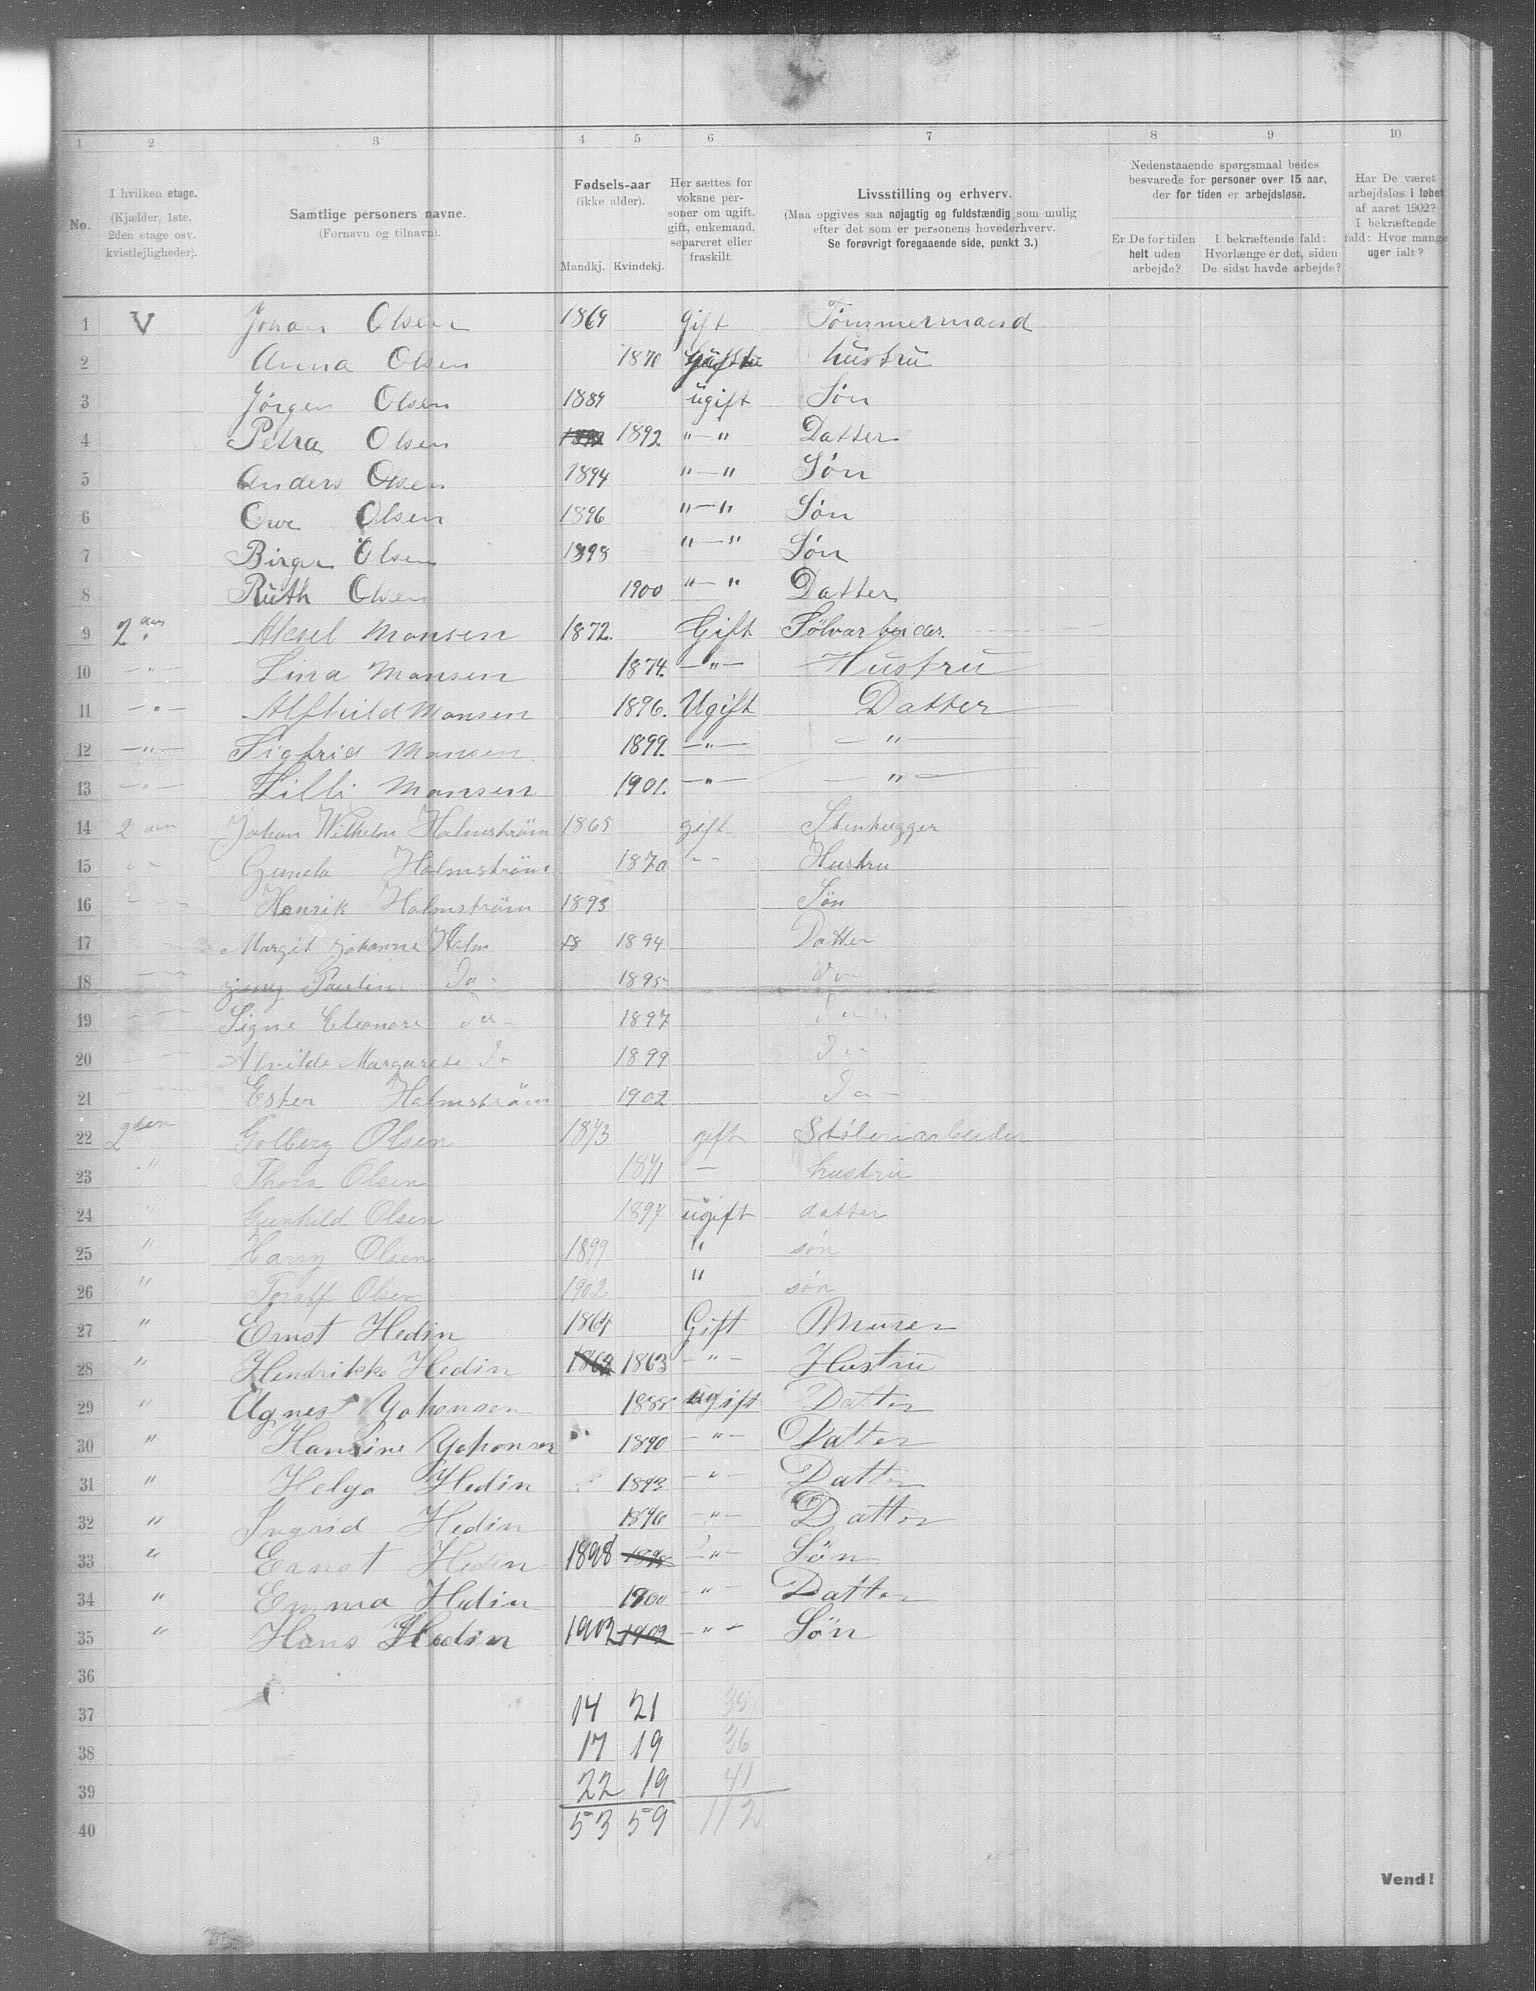 1 2 3 4 5 6 7 8 9 10
No.
I hvilken etage.
(Kjælder, 1ste,
2den etage osv.
kvistlejligheder).
Samtlige personers navne.
(Fornavn og tilnavn).
Fødsels-aar
(ikke alder).
Mandkj. Kvindekj.
Her sættes for
voksne per-
soner om ugift,
gift, enkemand,
separeret eller
fraskilt.
Livsstilling og erhverv.
(Maa opgives saa nøjagtig og fuldstændig som mulig
efter det som er personens hovederhverv.
Se forøvrigt foregaaende side, punkt 3.)
Nedenstaaende spørgsmaal bedes
besvarede for personer over 15 aar,
der for tiden er arbejdsløse.
Er De for tiden
helt uden
arbejde?
I bekræftende fald:
Hvorlænge er det, siden
De sidst havde arbejde?
Har De været
arbejdsløs i løbet
af aaret 1902?
I bekræftende
fald: Hvor mange
uger ialt?
1 V Johan Olsen 1869 gift Tømmermand
2 Anna Olsen 1870 hustru
3 Jørgen Olsen 1889 ugift Søn
4 Petra Olsen 1892 "—" Datter
5 Anders Olsen 1894 "—" Søn
6 Owe Olsen 1896 "—" Søn
7 Birger Olsen 1898 "—" Søn
8 Ruth Olsen 1900 "—" Datter
9 2den Aksel Monsen 1872. Gift Sölvarbeider.
10 —"— Lina Monsen 1874. —"— Hustru
11 —"— Alfhild Monsen 1896. Ugift Datter
12 —"— Sigfrid Monsen 1899. —"— —"—
13 —"— Lilli Monsen 1901. —"— —"—
14 2den Johan Wilhelm Holmström 1865 gift Stenhugger
15 Gunda Holmström 1870 "- Hustru
16 Henrik Holmström 1893 Søn
17 Margit Johanne Holm 18 1894 Datter
18 Jenny Pauline Do- 1895 Do
19 Signe Eleonore Do- 1897 Do
20 Alvilde Margarete Do 1899 Do
21 Ester Holmström 1902 Do-
22 2den Golberg Olsen 1873 gift Støberiarbeider
23 " Thora Olsen 1871 — hustru
24 " Gunhild Olsen 1897 ugift datter
25 " Harry Olsen 1899 " søn
26 " Toralf Olsen 1902 " søn
27 " Ernst Hedin 1864 Gift Murer
28 " Hendrikke Hedin 1863 -"- Hustru
29 " Agnes Johansen 1888 ugift Datter
30 " Hansine Johansen 1890 -"- Datter
31 " Helga Hedin 1893 -"- Datter
32 " Ingrid Hedin 1896 -"- Datter
33 " Ernst Hedin 1898 -"- Søn
34 " Emma Hedin 1900 -"- Datter
35 " Hans Hedin 1902 -"- Søn
36
37 14 21 35
38 17 19 36
39 22 19 41
40 53 59 112
Vend!